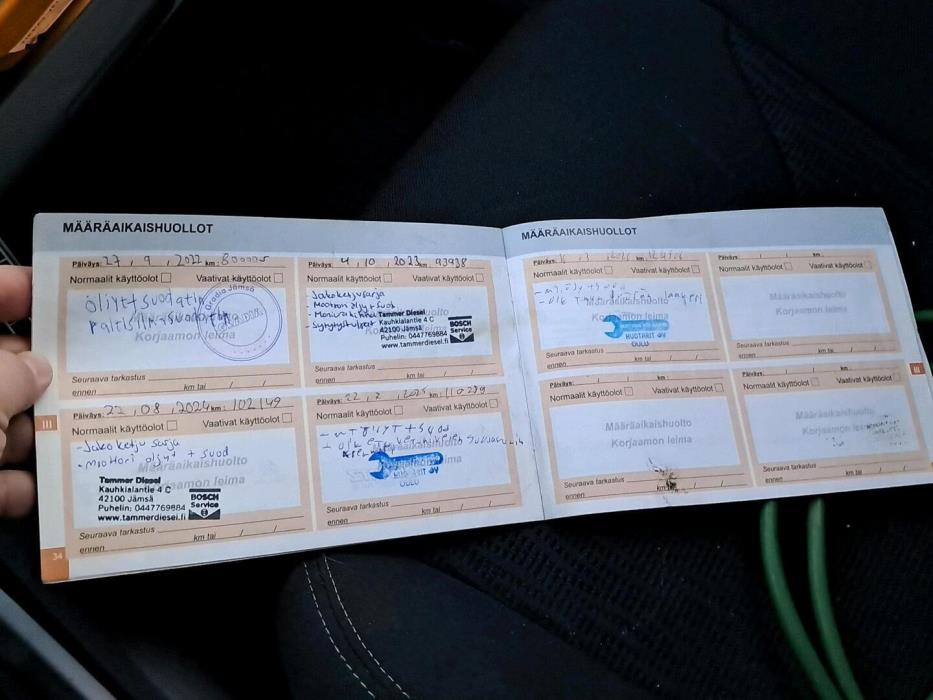 MÄÄRÄAIKAISHUOLLOT
Päiväys: 27 , 9 , 2022 km: 80000
Normaalit käyttöolot Vaativat käyttöolot
öljyt+suodatin
raitisilmasuodatin
Korjaamon leima
Seuraava tarkastus
ennen km tai / /
Päiväys: 4 , 10 , 2023 km: 93938
Normaalit käyttöolot Vaativat käyttöolot
- Jakoketjusarja
- Moottori öljyt + suod
- Moniura hihna
- Sytytystulpat
Tammer Diesel
Kauhkialantie 4 C
42100 Jämsä
Puhelin: 0447769884
www.tammerdiesel.fi
BOSCH
Service
Seuraava tarkastus
ennen km tai / /
Päiväys: 22 , 08 , 2024 km: 102149
Normaalit käyttöolot Vaativat käyttöolot
- Jakoketju sarja
- Moottori öljyt + suod
Määräaikaishuolto
Korjaamon leima
Tammer Diesel
Kauhkialantie 4 C
42100 Jämsä
Puhelin: 0447769884
www.tammerdiesel.fi
BOSCH
Service
Seuraava tarkastus
ennen km tai / /
Päiväys: 22 , 2 , 2025 km: 110239
Normaalit käyttöolot Vaativat käyttöolot
- MT ÖLJYT + SUOD
OULU
Seuraava tarkastus
ennen km tai / /
III
34
MÄÄRÄAIKAISHUOLLOT
Päiväys:
Normaalit käyttöolot Vaativat käyttöolot
Määräaikaishuolto
Korjaamon leima
OULU
Seuraava tarkastus
ennen km tai / /
Päiväys: / / km:
Normaalit käyttöolot Vaativat käyttöolot
Määräaikaishuolto
Korjaamon leima
Seuraava tarkastus
ennen km tai / /
Päiväys: / / km:
Normaalit käyttöolot Vaativat käyttöolot
Määräaikaishuolto
Korjaamon leima
Seuraava tarkastus
ennen km tai / /
Päiväys: / / km:
Normaalit käyttöolot Vaativat käyttöolot
Määräaikaishuolto
Korjaamon leima
Seuraava tarkastus
ennen km tai / /
III